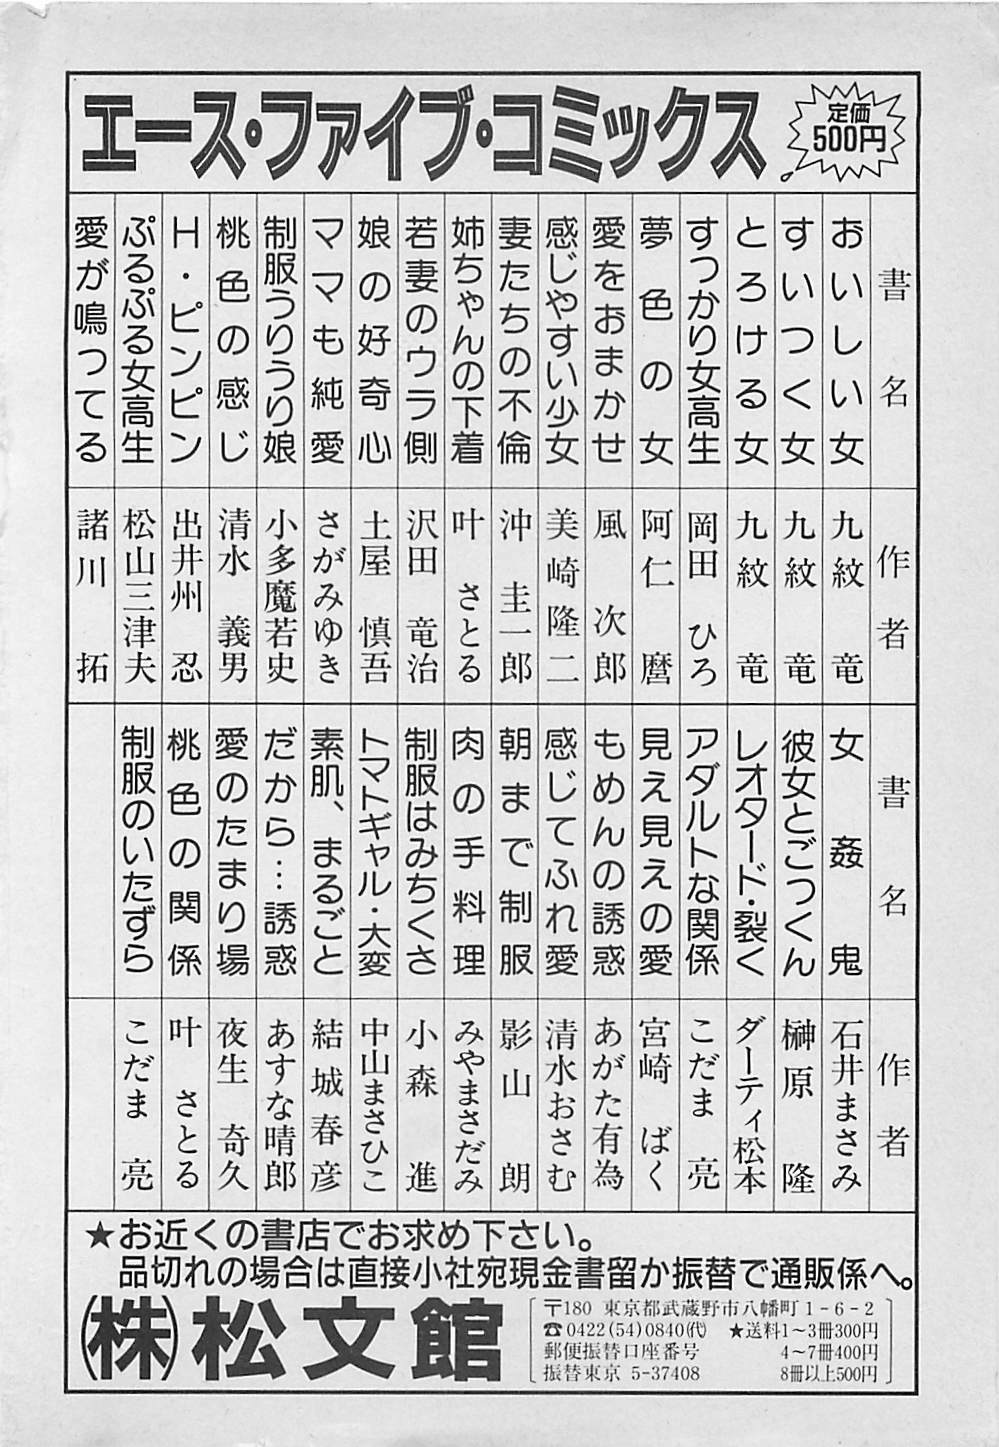 エース・ファイブ・コミックス
定価
500円
書名
おいしい女
すいつく女
とろける女
すっかり女高生
夢色の女
愛をおまかせ
感じやすい少女
妻たちの不倫
姉ちゃんの下着
若妻のウラ側
娘の好奇心
ママも純愛
制服うりうり娘
桃色の感じ
H・ピンピン
ぷるぷる女高生
愛が鳴ってる
作者
九紋竜
九紋竜
九紋竜
岡田ひろ
阿仁麿
風次郎
美崎隆二
沖圭一郎
叶さとる
沢田竜治
土屋慎吾
さがみゆき
小多魔若史
清水義男
出井州忍
松山三津夫
諸川拓
書名
女姦鬼
彼女とごっくん
レオタード・裂く
アダルトな関係
見え見えの愛
もめんの誘惑
感じてふれ愛
朝まで制服
肉の手料理
制服はみちくさ
トマトギャル・大変
素肌、まるごと
だから…誘惑
愛のたまり場
桃色の関係
制服のいたずら
作者
石井まさみ
榊原隆
ダーティ松本
こだま亮
宮崎ばく
あがた有為
清水おさむ
影山朗
みやまさだみ
小森進
中山まさひこ
結城春彦
あすな晴郎
夜生奇久
叶さとる
こだま亮
★お近くの書店でお求め下さい。
品切れの場合は直接小社宛現金書留か振替で通販係へ。
(株)松文館
〒180 東京都武蔵野市八幡町1-6-2
☎0422(54)0840(代) ★送料1〜3冊300円
郵便振替口座番号 4〜7冊400円
振替東京 5-37408 8冊以上500円